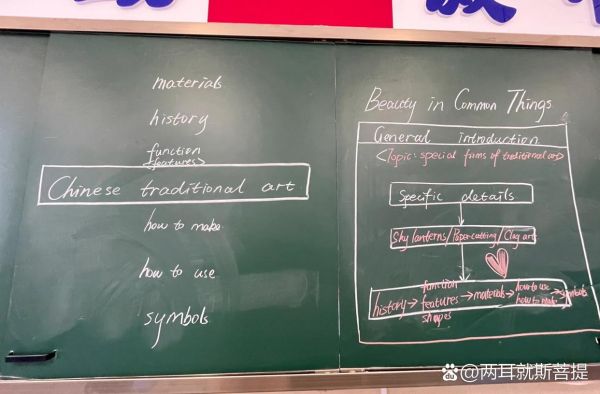 materials
history
function
features>
Chinese traditional art
how to make
how to use
symbols
Beauty in Common Things
General introduction
<Topic: special forms of traditional art>
Specific details
Sky lanterns/Paper cutting/Clay art
history→function features shapes→materials→how to use how to make→symbols
@两耳就斯菩提